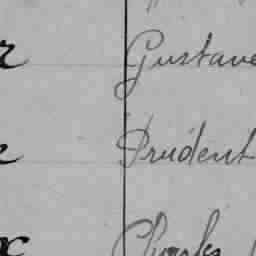 r Gustave
r Prudent
x Charles